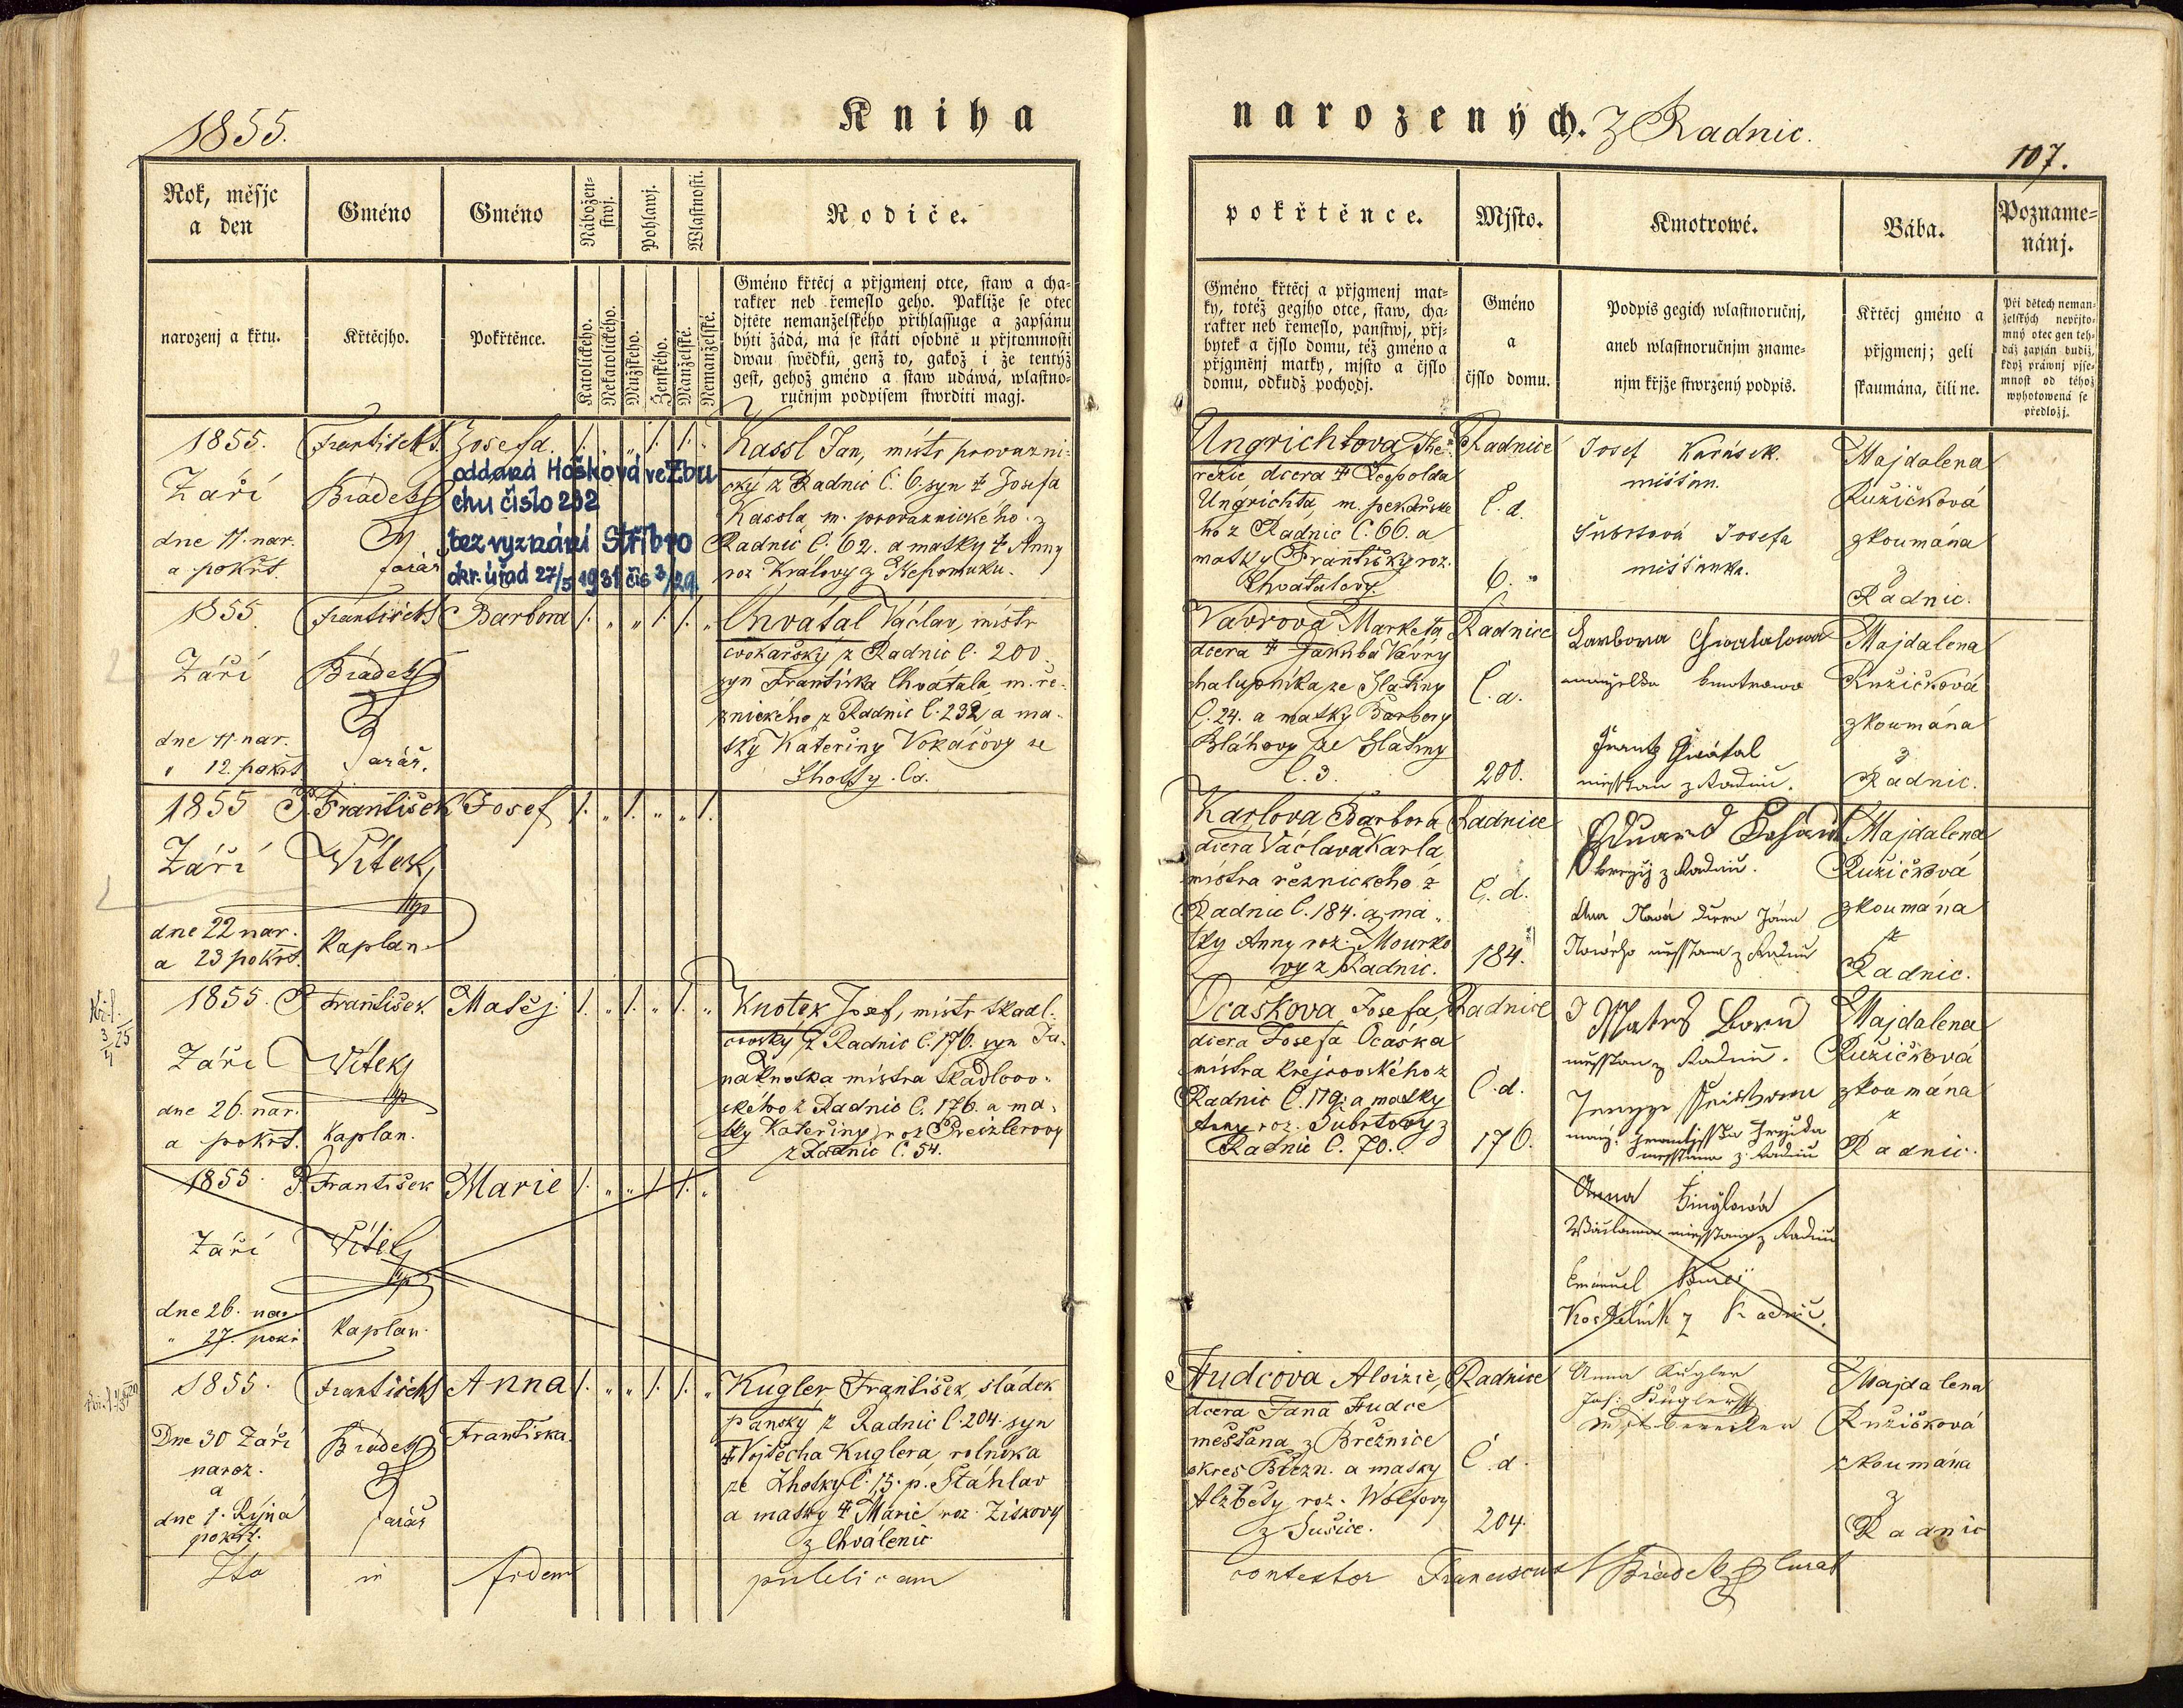 1855.
Kniha
narozených. Z Radnic.
107.
Rok, měsýc
a den
narozenj a křtu.
Gméno
Křtěcýho.
Gméno
Pokřtěnce.
Nábožen-
stwj.
Pohlawj.
Wlastnosti.
Katolického.
Nekatolického.
Mužského.
Ženského.
Manželské.
Nemanželské.
Rodiče.
Gméno křtěcj a přjgmenj otce, staw a cha-
rakter neb řemeslo geho. Pakliže se otec
djtěte nemanželského přihlassuge a zapsánu
býti žádá, má se státi osobně u přjtomnosti
dwau swědků, genž to, gakož i že tentýž
gest, gehož gméno a staw udáwá, wlastno-
ručnjm podpisem stwrditi magj.
pokřtěnce.
Gméno křtěcj a přjgmenj mat-
ky, totéž gegjho otce, staw, cha-
rakter neb řemeslo, panstwj, přj-
bytek a čjslo domu, též gméno a
přjgměnj matky, mjsto a čjslo
domu, odkudž pocházj.
Mjsto.
Gméno
a
čjslo domu.
Kmotrowé.
Podpis gegich wlastnoručnj,
aneb wlastnoručnjm zname-
njm křjže stwrzený podpis.
Bába.
Křtěcj gméno a
přjgmenj; geli
skaumána, čili ne.
Pozname-
nánj.
Při dětech neman-
želských nepřjto-
mný otec gen teh-
dáž zapsán budiž,
když práwnj pjse-
mnost od téhož
wyhotowená se
předložj.
1855.
Září
dne 11. nar.
a pokřt.
František
Brádek
farář
Josefa.
oddaná Hošková ve Zbu
chu číslo 292
bez vyznání Stříbro
okr. úřad 27/5 1931 čís 3/29.
Kassl Jan, mistr provazni-
cký z Radnic č. 6 syn † Josefa
Kassla, m. provaznického z
Radnic č. 62. a matky † Anny
roz. Kralovy z Nepomuku.
Ungrichtova The-
rezie, dcera † Leopolda
Ungrichta, m. pekařské
ho z Radnic č. 66. a
matky Františky roz.
Chvátalovy.
Radnice
č. d.
6.
Josef Karásek
mišťan.
Šubrtová Josefa
mišťanka.
Majdalena
Růžičková
zkoumána
z
Radnic.
1855.
Září
dne 11. nar.
" 12. pokřt.
František
Brádek
farář.
Barbora
Chvátal Václav, mistr
cvokařský z Radnic č. 200
syn Františka Chvatala, m. ře-
znického z Radnic č. 232 a ma-
tky Kateřiny Vokáčovy ze
Lhotky.
Vavrova Marketa
dcera † Jakuba Vavry
chalupníka ze Hlatiny
č. 24. a matky Barbory
Bláhovy ze Hlatiny
č. 3.
Radnice
č. d.
200.
Barbora Chwatalowa
manželka kmotrowa
Frantz Chwátal
miesstan z Radnic.
Majdalena
Růžičková
zkoumána
z
Radnic.
1855
Září
dne 22 nar.
a 23 pokřt.
P. František
Vítek
mp
Kaplan
Josef
Karlova Barbora
dcera Václava Karla
mistra řeznického z
Radnic č. 184. a ma-
tky Anny roz. Mourko
vy z Radnic.
Radnice
č. d.
184.
Eduard
z Radnic.
z Radnic
Majdalena
Růžičková
zkoumána
z
Radnic.
1855.
Září
dne 26. nar.
a pokřt.
P. František
Vítek
mp
Kaplan.
Matěj
Knotek Josef, mistr tkadl-
covský z Radnic č. 176. syn Ja-
na Knotka mistra tkadlcov-
ského z Radnic č. 176. a ma-
tky Kateřiny roz Preizlerovy
z Radnic č. 54.
Ocaskova Josefa,
dcera Josefa Ocáska
mistra krejčovského z
Radnic č. 179. a matky
Anny roz. Šubrtovy z
Radnic č. 70.
Radnice
č. d.
176.
Mates Born
messtan z Radnic.
messtana z Radnic
Majdalena
Růžičková
zkoumána
z
Radnic.
1855.
Září
dne 26. nar
" 27. pokř
P. František
Vítek
mp
Kaplan.
Marie
Anna
miesstana z Radnic
Emanuel Bureš
Kostelník z Radnic.
1855.
Dne 30 Září
naroz.
a
dne 1. Října
pokřt.
František
Brádek
farář
Anna
Františka.
Kugler František, sládek
panský z Radnic č. 204. syn
† Vojtěcha Kuglera, rolníka
ze Lhotky č. 15. p. Štáhlav
a matky † Marie roz. Ziskovy
z Chválenic
Hudcova Aloizie,
dcera Jana Hudce
měšťana z Březnice
okres Březn. a matky
Alžběty roz. Wolfovy
z Sušice.
Radnice
č. d.
204.
Anna Kugler
Jos: Kugler
Majdalena
Růžičková
zkoumána
z
Radnic
Ita in fidem publicam contestor Franciscus Brádek Curat